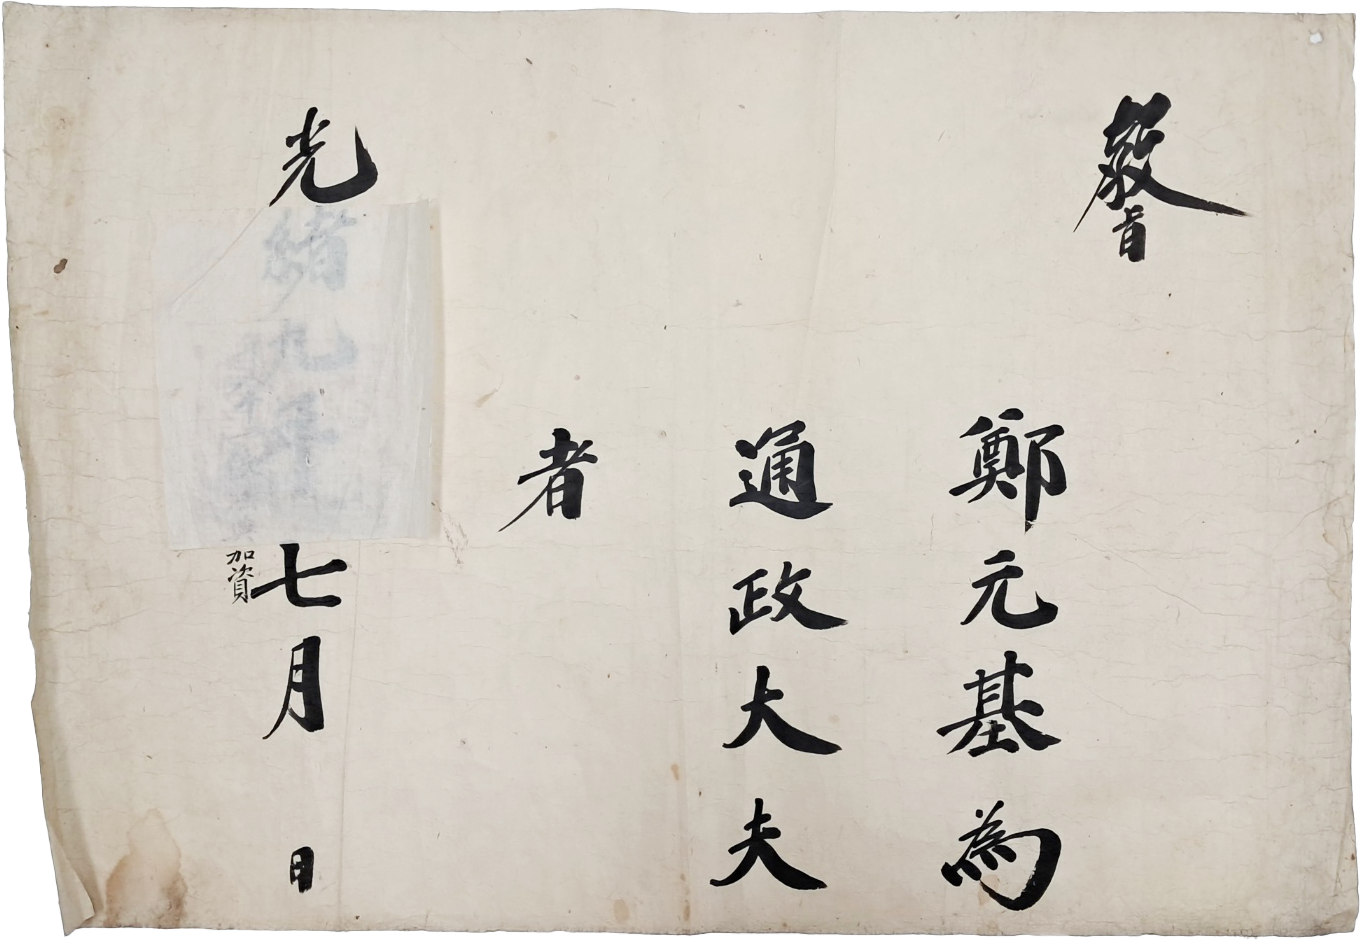 教旨
鄭元基為
通政大夫
者
光緒九年七月 日
加資